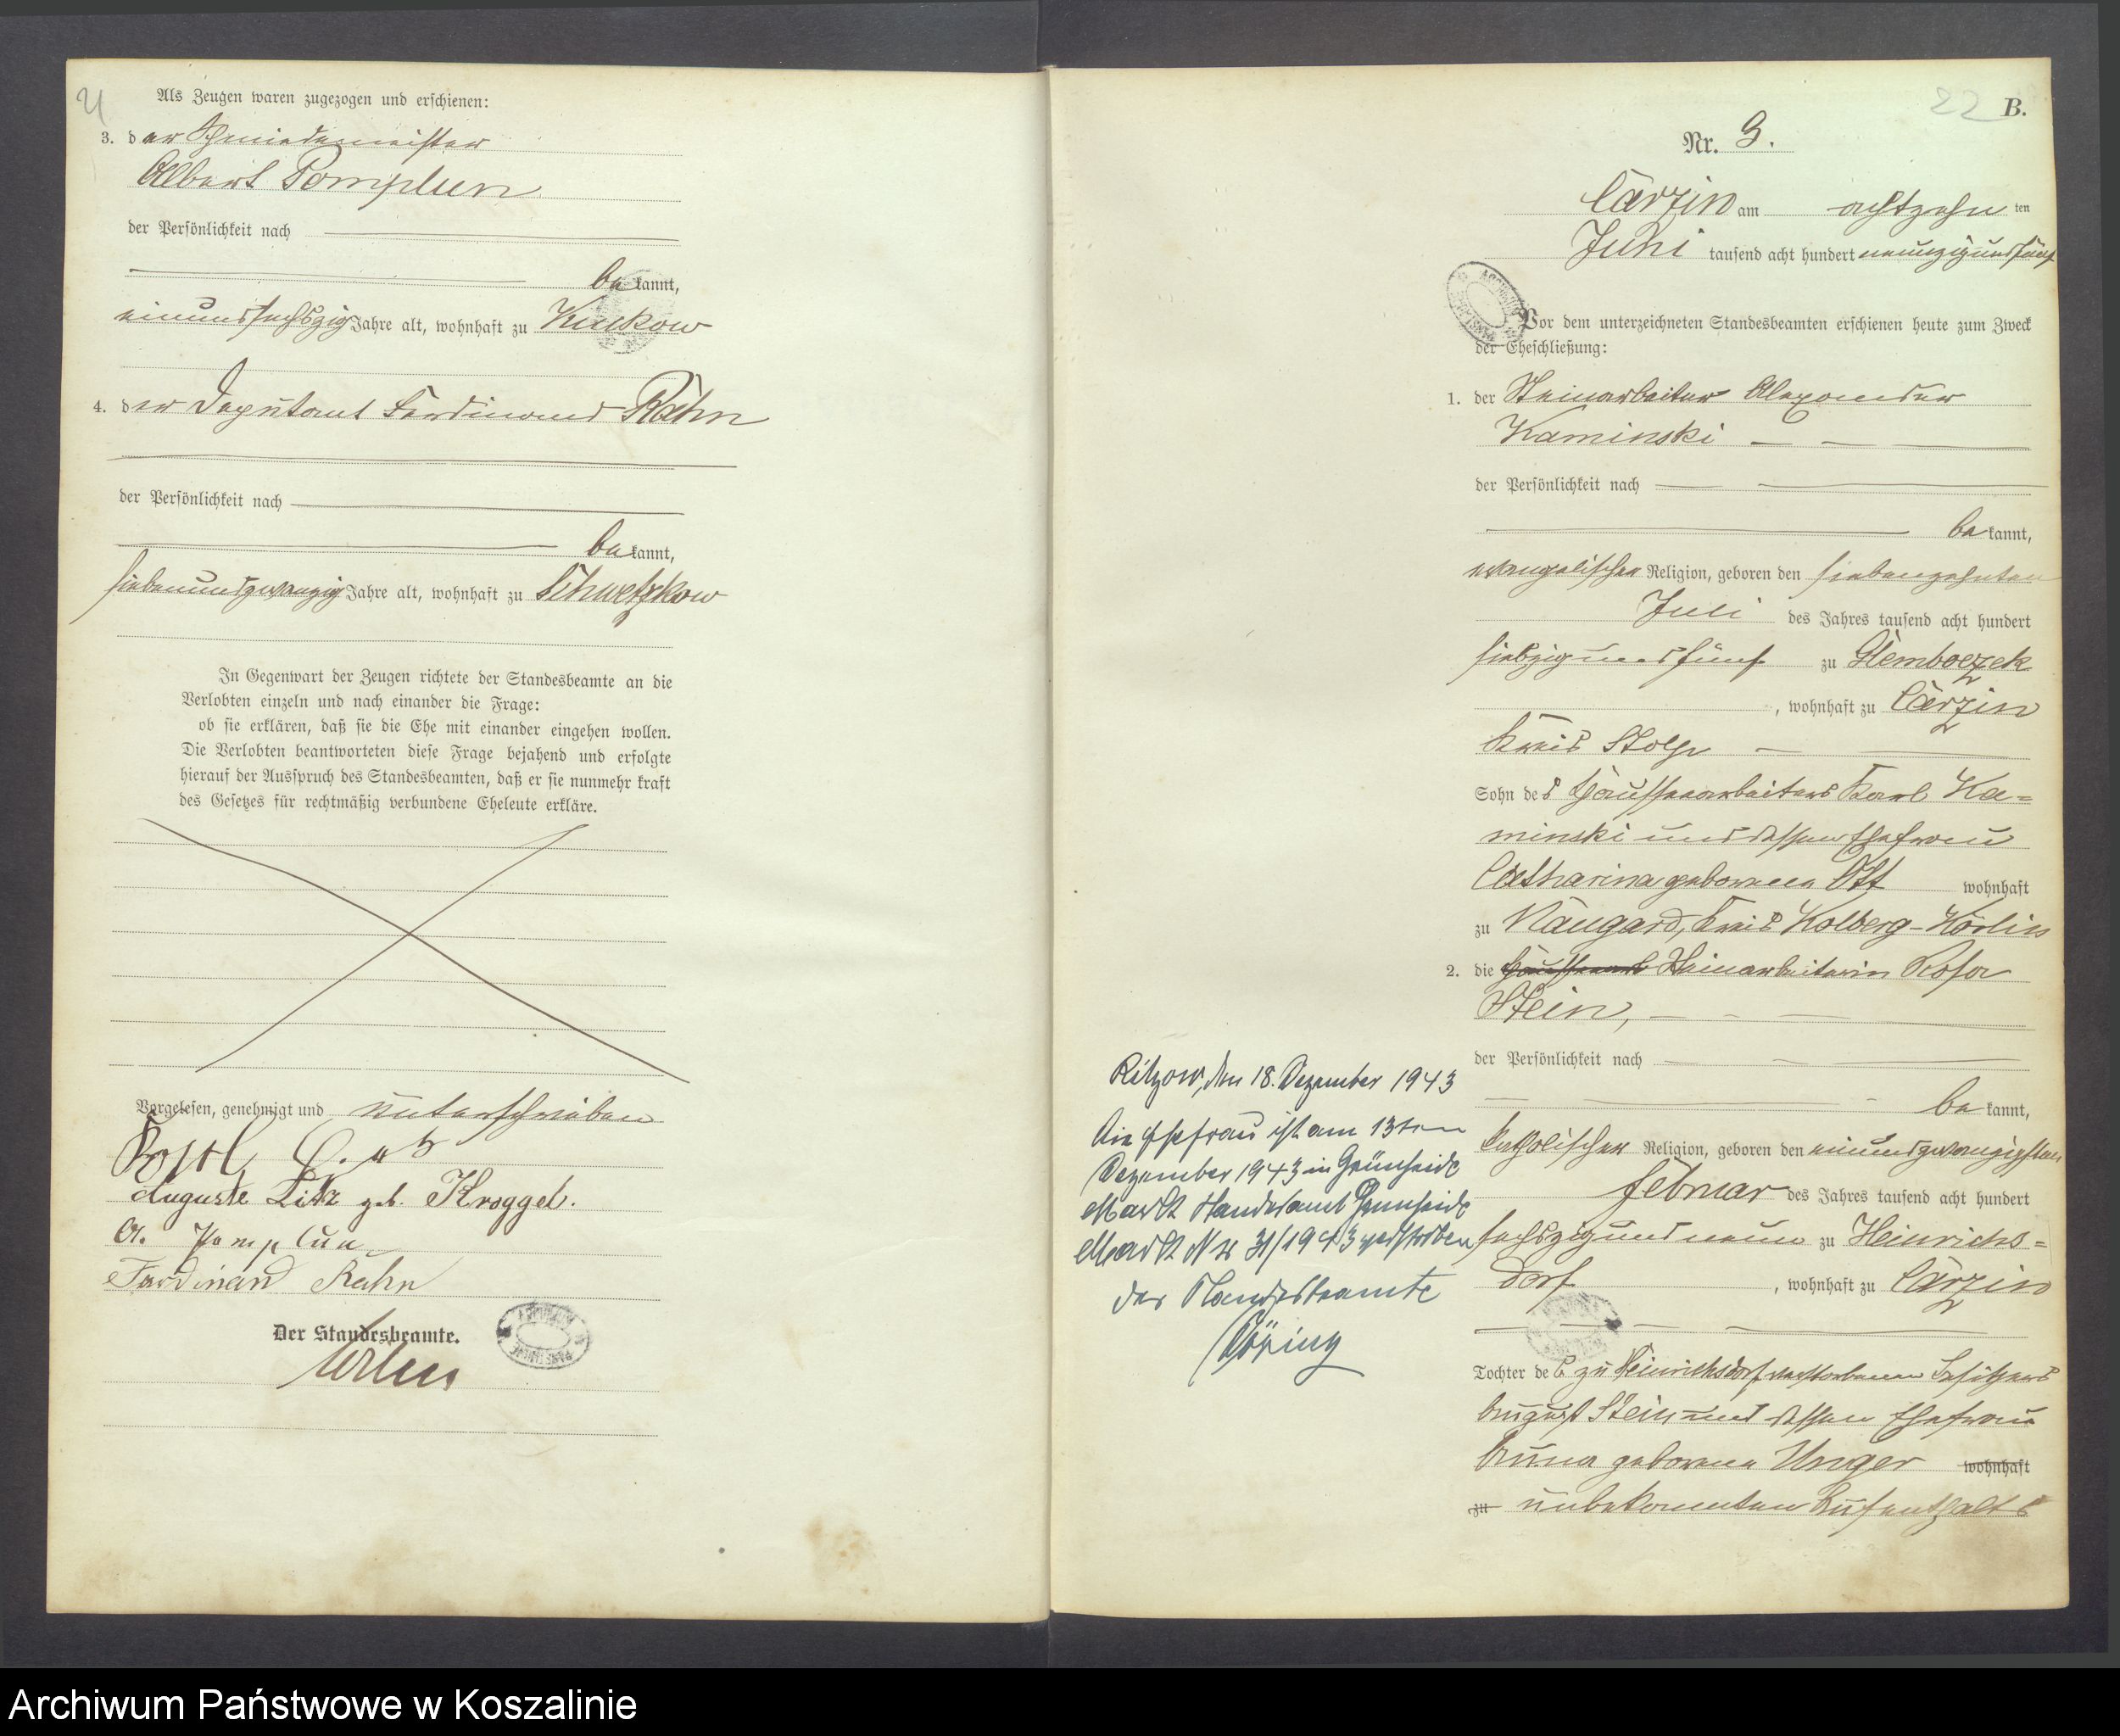 Als Zeugen waren zugezogen und erschienen:
3. der Schmiedemeister
Albert Pomplun
der Persönlichkeit nach
bekannt,
einundsechszig Jahre alt, wohnhaft zu Kukow
4. der Deputant Ferdinand Rahn
der Persönlichkeit nach
bekannt,
siebenundzwanzig Jahre alt, wohnhaft zu Schwetzkow
In Gegenwart der Zeugen richtete der Standesbeamte an die
Verlobten einzeln und nach einander die Frage:
ob sie erklären, daß sie die Ehe mit einander eingehen wollen.
Die Verlobten beantworteten diese Frage bejahend und erfolgte
hierauf der Ausspruch des Standesbeamten, daß er sie nunmehr kraft
des Gesetzes für rechtmäßig verbundene Eheleute erkläre.
Vorgelesen, genehmigt und unterschrieben
Auguste Litz geb. Kroggel.
A. Pomplun
Ferdinand Rahn
Der Standesbeamte.
22 B.
Nr. 9.
Carzin am achtzehn ten
Juni tausend acht hundert neunzig und fünf
Vor dem unterzeichneten Standesbeamten erschienen heute zum Zweck
der Eheschließung:
1. der Steinarbeiter Alexander
Kaminski
der Persönlichkeit nach
bekannt,
evangelischer Religion, geboren den siebenzehnten
Juli des Jahres tausend acht hundert
siebzig und fünf zu Glemboczek
, wohnhaft zu Carzin
Kreis Stolp
Sohn des Chausseearbeiters Karl Ka=
minski und dessen Ehefrau
Catharina geborenen Ott wohnhaft
zu Naugard, Kreis Kolberg-Körlin
2. die Steinarbeiterin Rosa
Stein,
der Persönlichkeit nach
bekannt,
katholischer Religion, geboren den einundzwanzigsten
Februar des Jahres tausend acht hundert
sechszig und neun zu Heinrichs=
dorf, wohnhaft zu Carzin
Tochter des zu Heinrichsdorf verstorbenen Besitzers
August Stein und dessen Ehefrau
Anna geborene Unger wohnhaft
zu unbekannten Aufenthalts
Ritzow, den 18. Dezember 1943
Die Ehefrau ist am 13ten
Dezember 1943 in Grünheide
Mark Standesamt Grünheide
Mark Nr 31/1943 verstorben
Der Standesbeamte
Archiwum Państwowe w Koszalinie